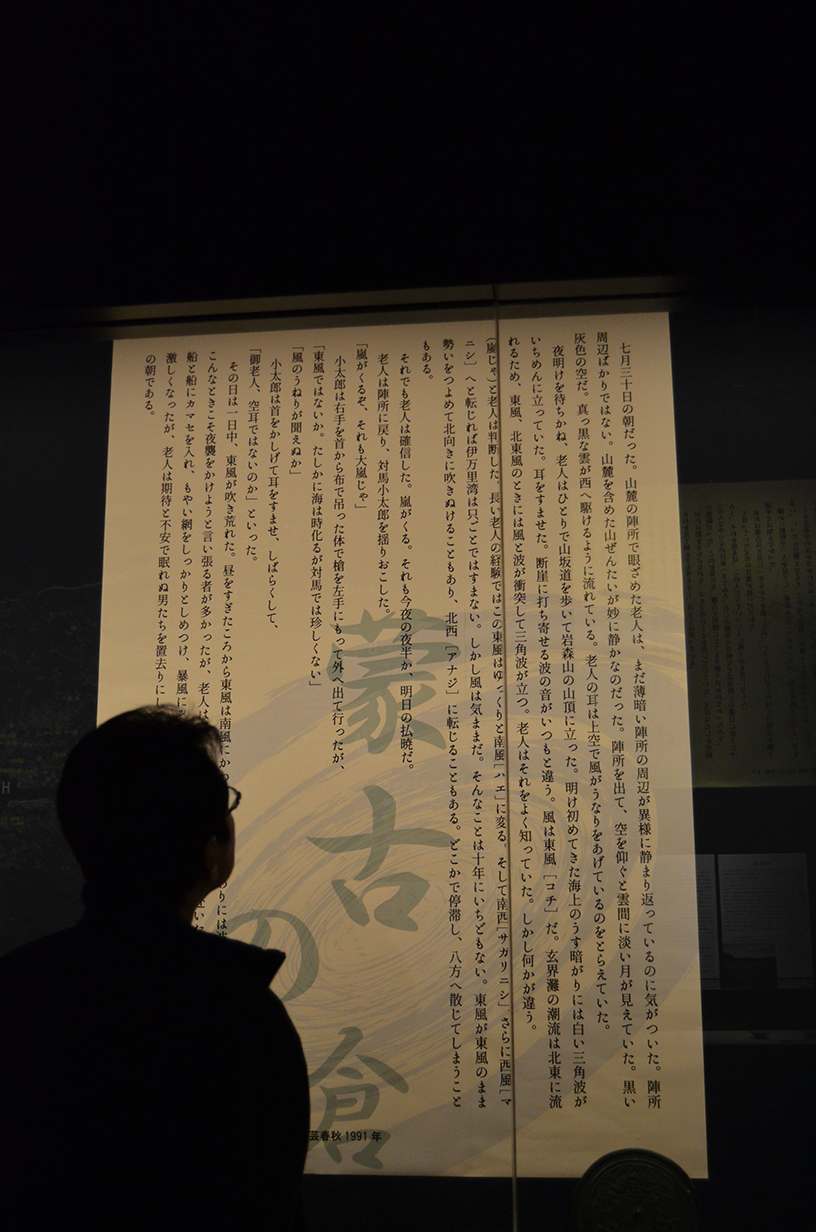 七月三十日の朝だった。山麓の陣所で眼ざめた老人は、まだ薄暗い陣所の周辺が異様に静まり返っているのに気がついた。陣所
周辺ばかりではない。山麓を含めた山ぜんたいが妙に静かなのだった。陣所を出て、空を仰ぐと雲間に淡い月が見えていた。黒い
灰色の空だ。真っ黒な雲が西へ駆けるように流れている。老人の耳は上空で風がうなりをあげているのをとらえていた。
夜明けを待ちかね、老人はひとりで山坂道を歩いて岩森山の山頂に立った。明け初めてきた海上のうす暗がりには白い三角波が
いちめんに立っていた。耳をすませた。断崖に打ち寄せる波の音がいつもと違う。風は東風［コチ］だ。玄界灘の潮流は北東に流
れるため、東風、北東風のときには風と波が衝突して三角波が立つ。老人はそれをよく知っていた。しかし何かが違う。
(嵐じゃ)と老人は判断した。長い老人の経験ではこの東風はゆっくりと南風［ハエ］に変る。そして南西［サガリニシ］、さらに西風［マ
ニシ］へと転じれば伊万里湾は只ごとではすまない。しかし風は気ままだ。そんなことは十年にいちどもない。東風が東風のまま
勢いをつよめて北向きに吹きぬけることもあり、北西［アナジ］に転じることもある。どこかで停滞し、八方へ散じてしまうこと
もある。
それでも老人は確信した。嵐がくる。それも今夜の夜半か、明日の払暁だ。
老人は陣所に戻り、対馬小太郎を揺りおこした。
「嵐がくるぞ、それも大嵐じゃ」
小太郎は右手を首から布で吊った体で槍を左手にもって外へ出て行ったが、
「東風ではないか。たしかに海は時化るが対馬では珍しくない」
「風のうねりが聞えぬか」
小太郎は首をかしげて耳をすませ、しばらくして、
「御老人、空耳ではないのか」といった。
その日は一日中、東風が吹き荒れた。昼をすぎたころから東風は南風にか
こんなときこそ夜襲をかけようと言い張る者が多かったが、老人は
船と船にカマセを入れ、もやい綱をしっかりとしめつけ、暴風に
激しくなったが、老人は期待と不安で眠れぬ男たちを置去りにし
の朝である。
蒙古の
芸春秋 1991 年